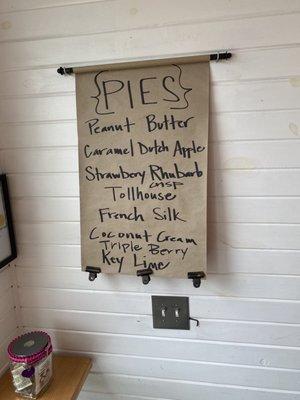 {PIES}
Peanut Butter
Caramel Dutch Apple
Strawbery Rhubarb
crisp
Tollhouse
French Silk
Coconut Cream
Triple Berry
Key Lime